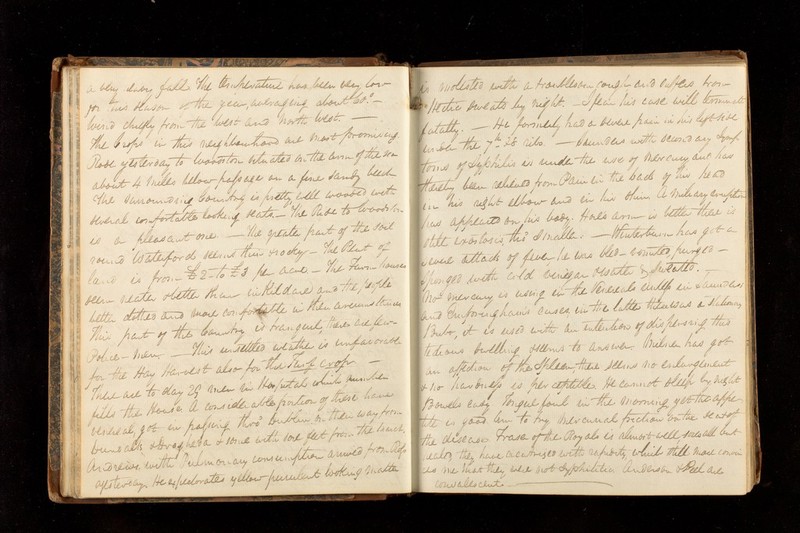 a very slimy fall. The temperature has been very low
for this season of the year, averaging about 60° –
wind chiefly from the West and North West. –
The Crops in this neighbourhood are most promising
Rode yesterday to Woodstown situated on the
about 4 Miles below passage on a fine sandy beach
The surrounding Country is pretty well wooded with
several comfortable looking seats – The Ride to Woodstown
is a pleasant one – The greater part of the soil
round Waterford seems thin & rocky – The Rent of
land is from £2 to £3 per acre – The Farm houses
seem neater & better than in Kildare and the people
better clothed and more comfortable in their circumstances
This part of the Country is tranquil, there are few
Police men – This unsettled weather is unfavourable
for the Hay Harvest also for the Turf crop –
There are to day 29 men in Hospital which number
fills the House. A considerable portion of these have
venereal, got in passing thro' Dublin, on their way from
Dundalk & Drogheda & some with sore feet from the march.
Andrews with Pulmonary consumption arrived from
yesterday. He expectorates yellow purulent looking matter
is molested with a troublesome cough and suffers from
Hectic sweats by night. I fear his case will terminate
fatally. – He formerly had a severe pain in his left side
under the 7th & 8 ribs. – Saunders with secondary symp
toms of Syphilis is under the use of Mercury and has
thereby been relieved from Pain in the back of his head
in his right elbow and in his A Military eruption
has appeared on his body. arm is better there is
still tho' smaller. – Winterburn has got a
severe attack of fever he was bled – vomited, purged –
sponged with cold vinegar & water & sweated. –
Mercury is using in the Venereals in Saunders
and cases in the latter there was a
Bubo, it is used with an intention of dispersing this
tedious swelling & seems to answer. Milner has got
an affection of the Spleen, there seems no enlargement
& no hardness is perceptible. He cannot sleep by night
Bowels easy Tongue foul in the morning yet the appe-
tite is good. Am to try Mercurial friction on the seat of
the disease. Fraser of the Royals is almost well,
healed they have with rapidity, which still more convin
ces me that they were not Syphilitic. Anderson & Peel are
convalescent. –